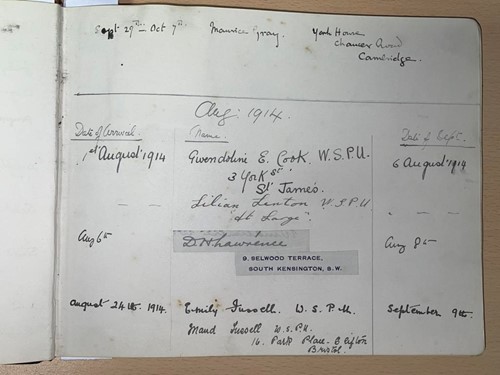 Sept 29th – Oct 7th. Maurice Gray. York House
Chaucer Road
Cambridge.
Aug: 1914.
Date of Arrival. Name. Date of Dept.
1st August 1914 Gwendoline E. Cook. W.S.P.U. 6 August 1914
3 York St
St James.
– – Lilian Lenton W.S.P.U – –
"At Large".
Aug 6th D H Lawrence Aug 8th
9, SELWOOD TERRACE,
SOUTH KENSINGTON, S.W.
August 24th. 1914. Emily Fussell. W.S.P.U. September 9th.
Maud Fussell W.S.P.U.
16. Park Place. Clifton
Bristol.